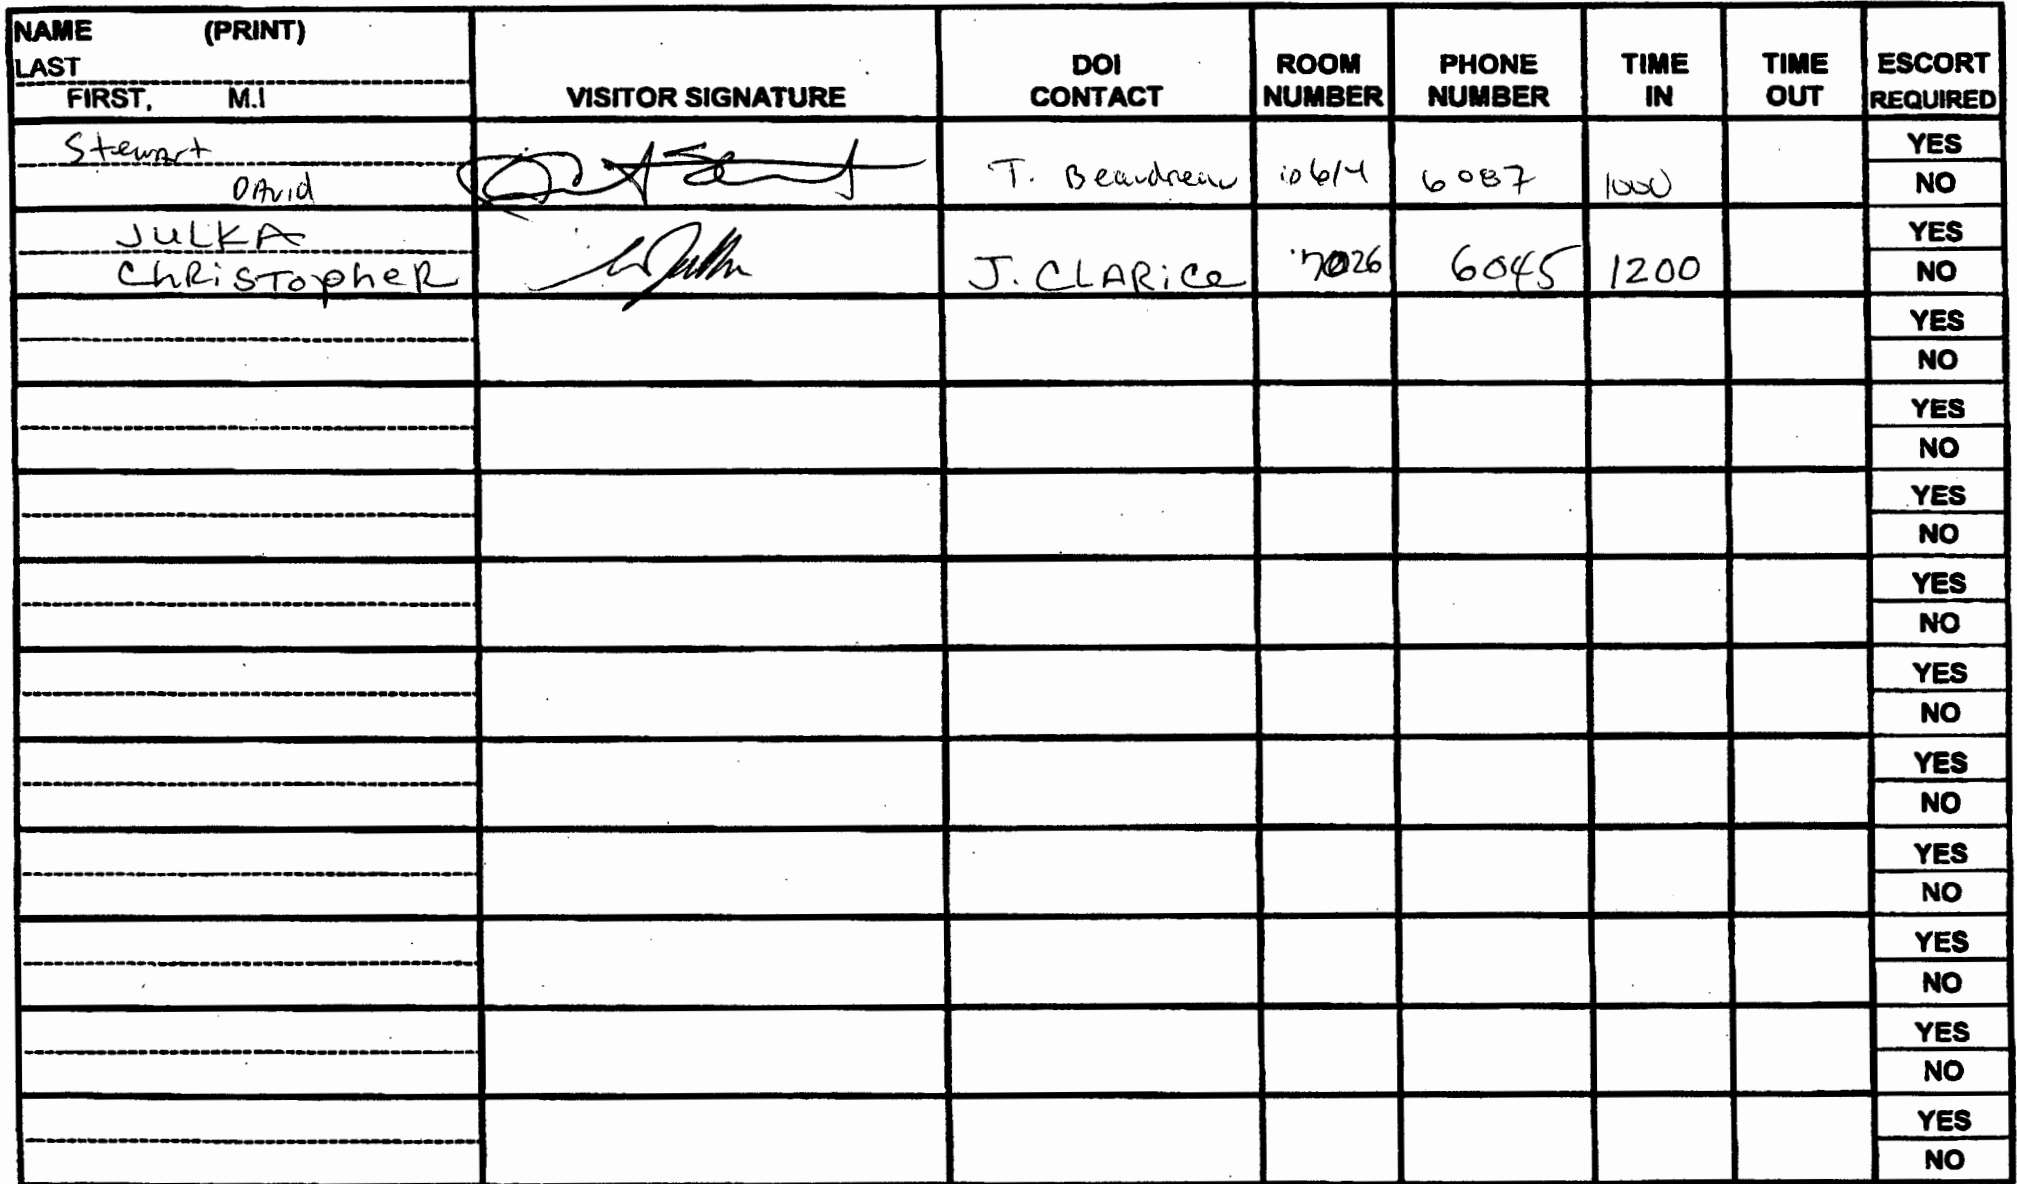 NAME (PRINT)
LAST
FIRST, M.I
VISITOR SIGNATURE
DOI CONTACT
ROOM NUMBER
PHONE NUMBER
TIME IN
TIME OUT
ESCORT REQUIRED
Stewart
David
T. Beaudreau
6087
1000
YES
NO
JULKA
ChRiSTopheR
J. CLARice
7026
6045
1200
YES
NO
YES
NO
YES
NO
YES
NO
YES
NO
YES
NO
YES
NO
YES
NO
YES
NO
YES
NO
YES
NO